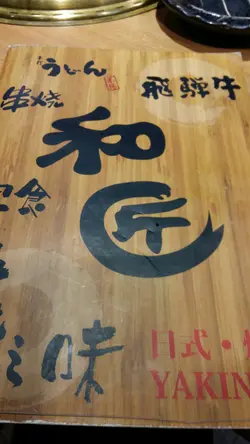 うどん
串焼
飛騨牛
和匠
食
味
日式・
YAKIN